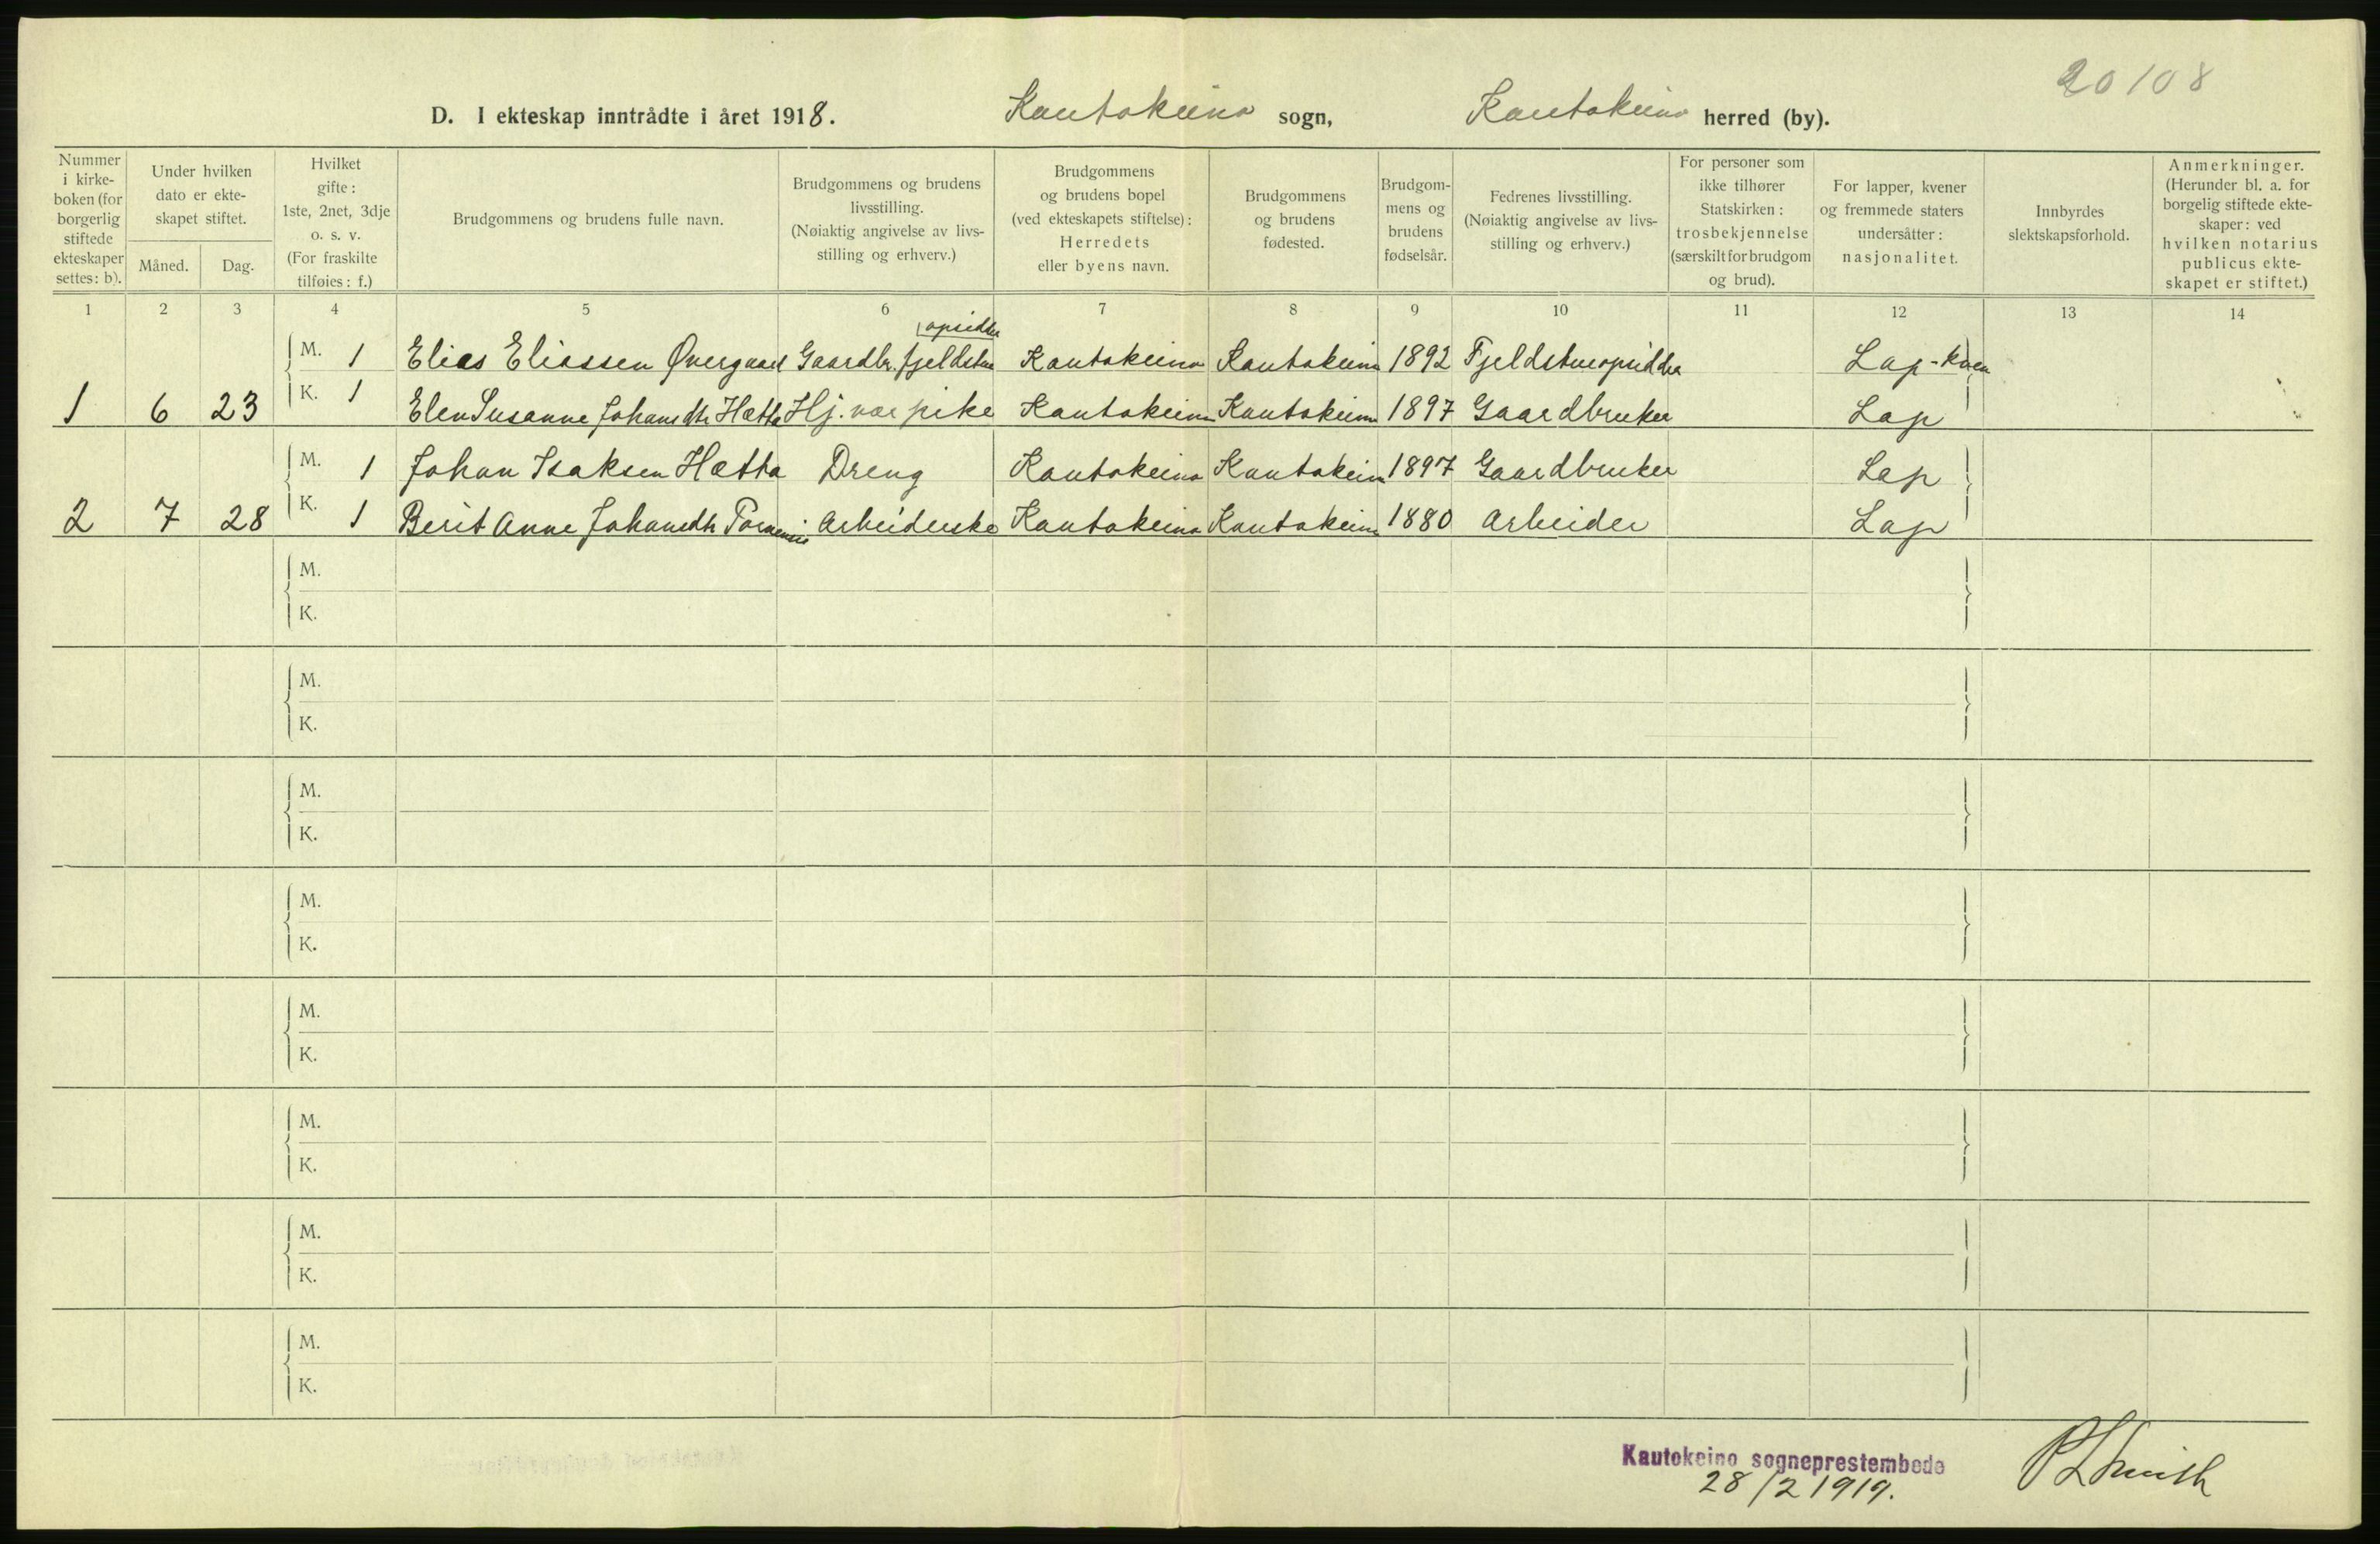 20108
D. I ekteskap inntrådte i året 1918. Kautokeino sogn, Kautokeino herred (by).
Nummer i kirke-boken (for borgerlig stiftede ekteskaper settes: b).
Under hvilken dato er ekte-skapet stiftet.
Måned. Dag.
Hvilket gifte: 1ste, 2net, 3dje o. s. v. (For fraskilte tilføies: f.)
Brudgommens og brudens fulle navn.
Brudgommens og brudens livsstilling. (Nøiaktig angivelse av livs-stilling og erhverv.)
Brudgommens og brudens bopel (ved ekteskapets stiftelse): Herredets eller byens navn.
Brudgommens og brudens fødested.
Brudgom-mens og brudens fødselsår.
Fedrenes livsstilling. (Nøiaktig angivelse av livs-stilling og erhverv.)
For personer som ikke tilhører Statskirken: trosbekjennelse (særskilt for brudgom og brud).
For lapper, kvener og fremmede staters undersåtter: nasjonalitet.
Innbyrdes slektskapsforhold.
Anmerkninger. (Herunder bl. a. for borgelig stiftede ekte-skaper: ved hvilken notarius publicus ekte-skapet er stiftet.)
1 2 3 4 5 6 7 8 9 10 11 12 13 14
opsidder
M. 1 Elias Eliassen Øvergaard Gaardbr. fjeldstue Kautokeino Kautokeino 1892 Fjeldstueopsidder Lap-kven
1 6 23 K. 1 Elen Susanne Johansdtr Hætta Hj. vær pike Kautokeino Kautokeino 1897 Gaardbruker Lap
M. 1 Johan Isaksen Hætta Dreng Kautokeino Kautokeino 1897 Gaardbruker Lap
2 7 28 K. 1 Berit Anne Johansdtr Arbeiderske Kautokeino Kautokeino 1880 Arbeider Lap
M.
K.
M.
K.
M.
K.
M.
K.
M.
K.
M.
K.
M.
K.
M.
K.
Kautokeino sogneprestembede
28/2 1919. P L Smith